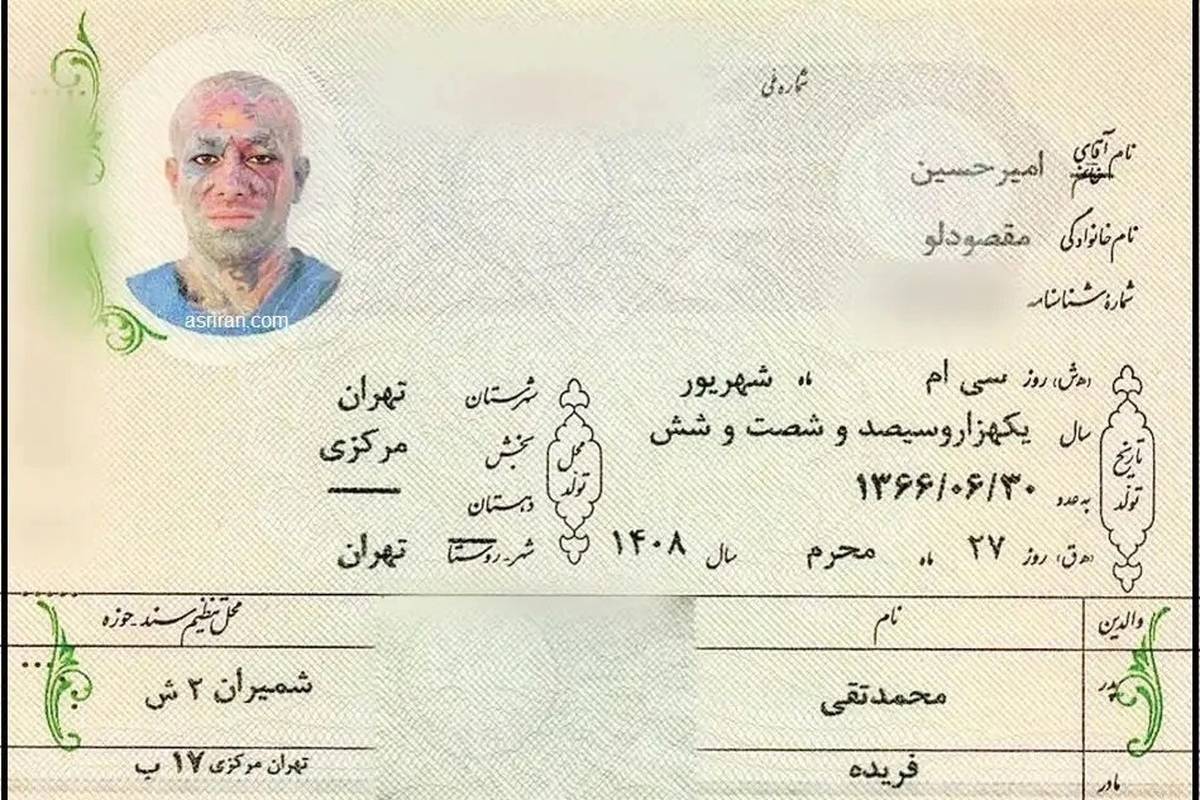 شماره ملی
نام آقای خانم امیرحسین
نام خانوادگی مقصودلو
شماره شناسنامه
asriran.com
تاریخ تولد
(ه‍.ش) روز سی ام ماه شهریور
سال یکهزاروسیصد و شصت و شش
به عدد ۱۳۶۶/۰۶/۳۰
(ه‍.ق) روز ۲۷ ماه محرم سال ۱۴۰۸
محل تولد
شهرستان تهران
بخش مرکزی
دهستان
شهر - روستا تهران
والدین نام محل تنظیم سند - حوزه
پدر محمدتقی شمیران ۲ ش
مادر فریده تهران مرکزی ۱۷ ب